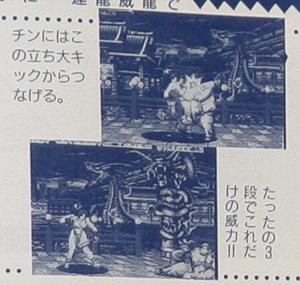 連龍威龍で
チンにはこ
の立ち大キ
ックからつ
なげる。
たったの3
段でこれだ
けの威力!!